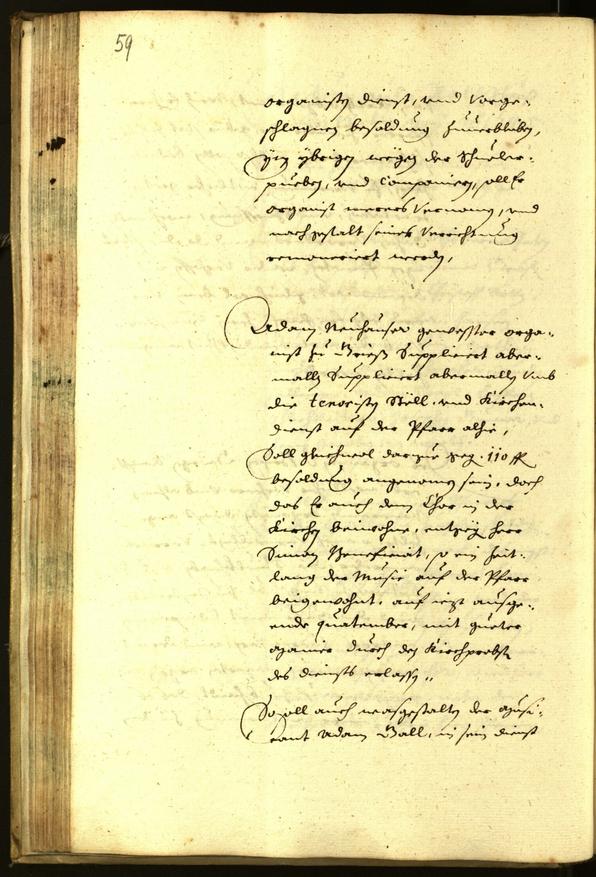 59
organisten dienst, und Vorge-
schlagnen besoldung zuverbleiben,
Im ybrigen wegen der Schueler-
pueben, und Companien, soll Er
organist merers Vernomen, und
nach gestalt seiner Verrichtung
remoneriert werden,
Adam Neuhauser gewesster orga-
nist zu Brixen Suppliciert aber-
malln Suppliciert abermalln umb
die tenoristen Stell, und Kirchen-
dienst auf der Pfarr alhie,
Soll gleichwol darzue geg. 110 fl
besoldung angenomen sein, doch
das Er auch dem Chor in der
Kirchen beiwohne, entgegen herr
Simon Beneficiat, so ein zeit-
lang der Music auf der Pfarr
beigewohnt, auf iezt ausge-
ende quatember, mit gueter
manier durch den Kirchprobst
des diensts erlassen,,
So soll auch wasgestalten der musi-
cant Adam Ball, in sein dienst